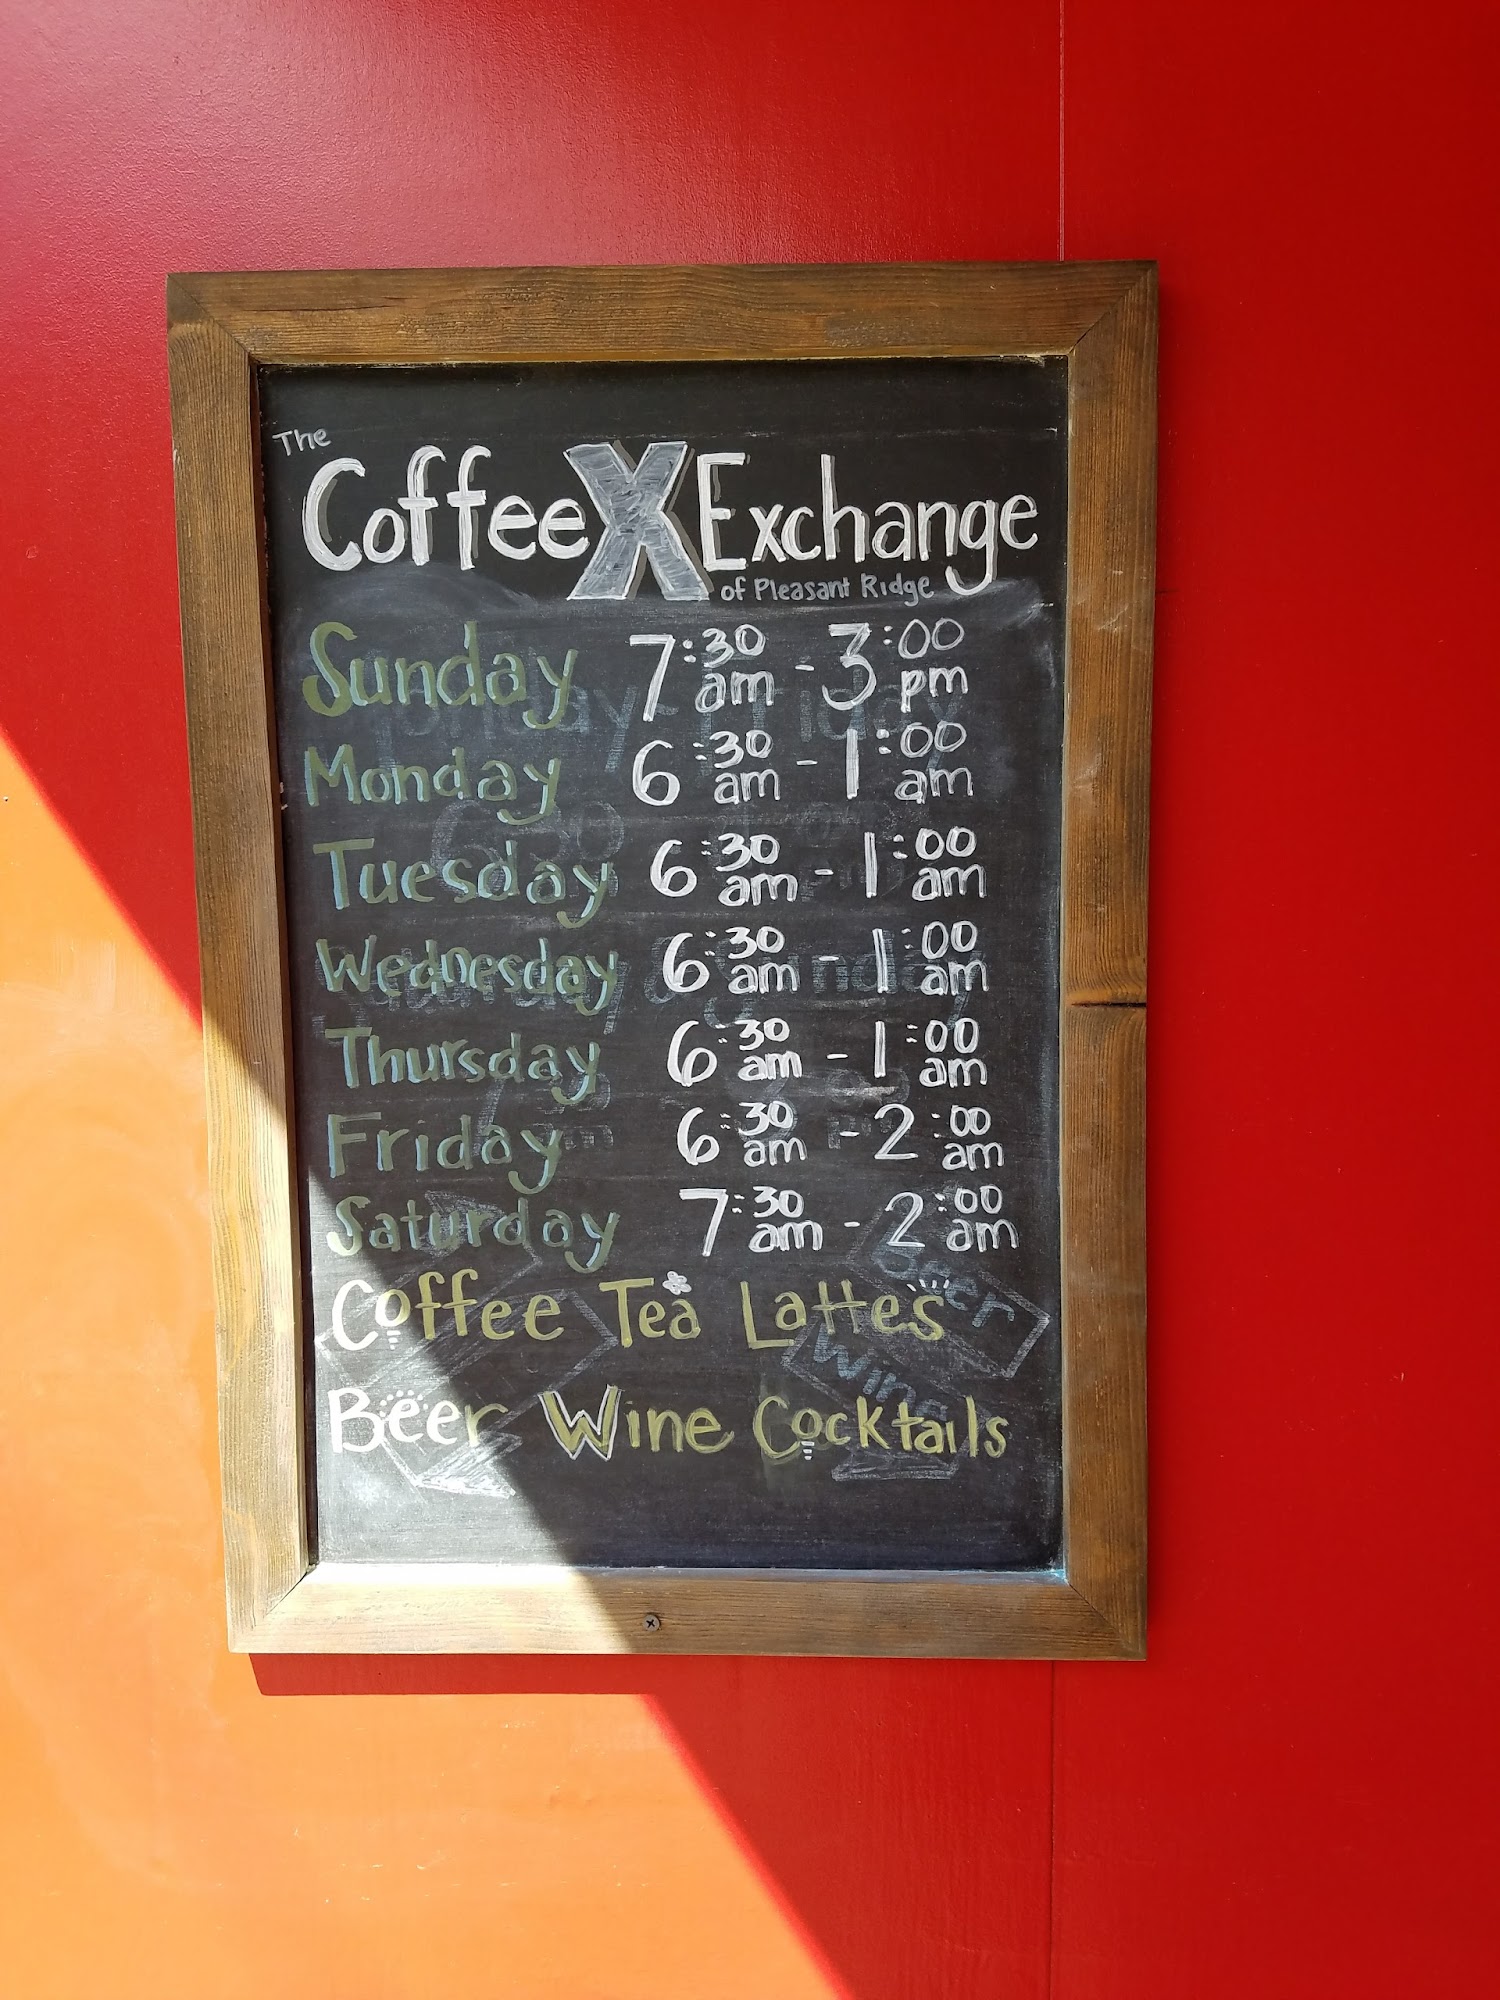 The
Coffee X Exchange
of Pleasant Ridge
Sunday 7:30 am - 3:00 pm
Monday 6:30 am - 1:00 am
Tuesday 6:30 am - 1:00 am
Wednesday 6:30 am - 1:00 am
Thursday 6:30 am - 1:00 am
Friday 6:30 am - 2:00 am
Saturday 7:30 am - 2:00 am
Coffee Tea Lattes
Beer Wine Cocktails